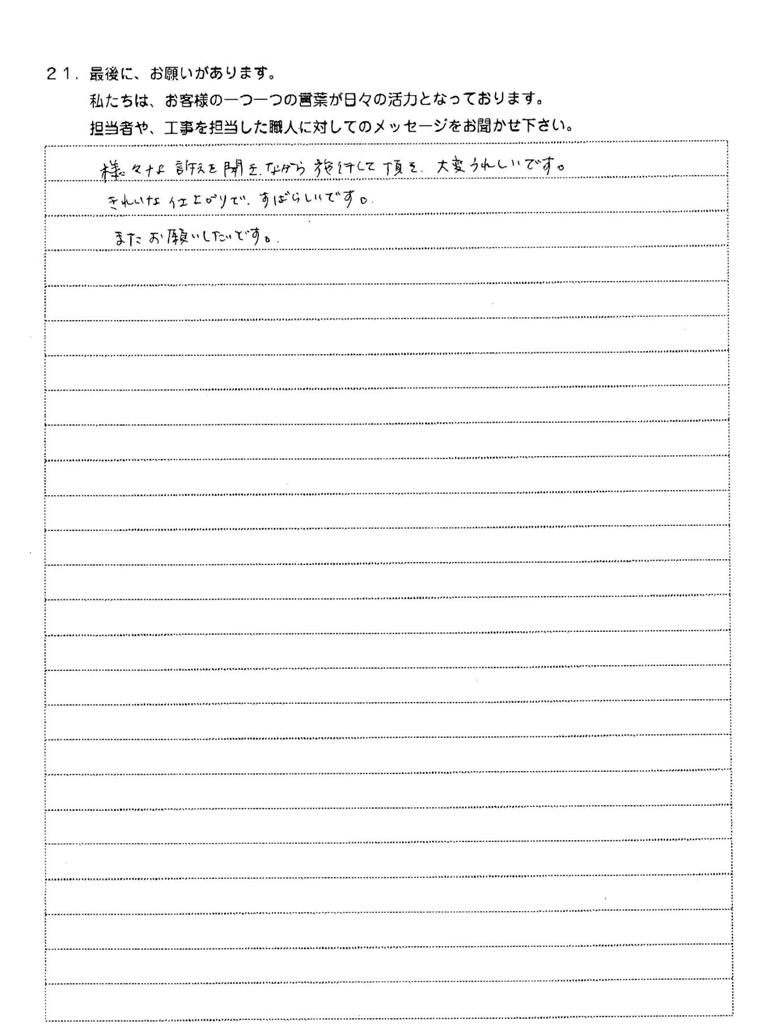 21. 最後に、お願いがあります。
私たちは、お客様の一つ一つの言葉が日々の活力となっております。
担当者や、工事を担当した職人に対してのメッセージをお聞かせ下さい。
様々な訴えを聞きながら施行して頂き、大変うれしいです。
きれいな仕上がりで、すばらしいです。
またお願いしたいです。